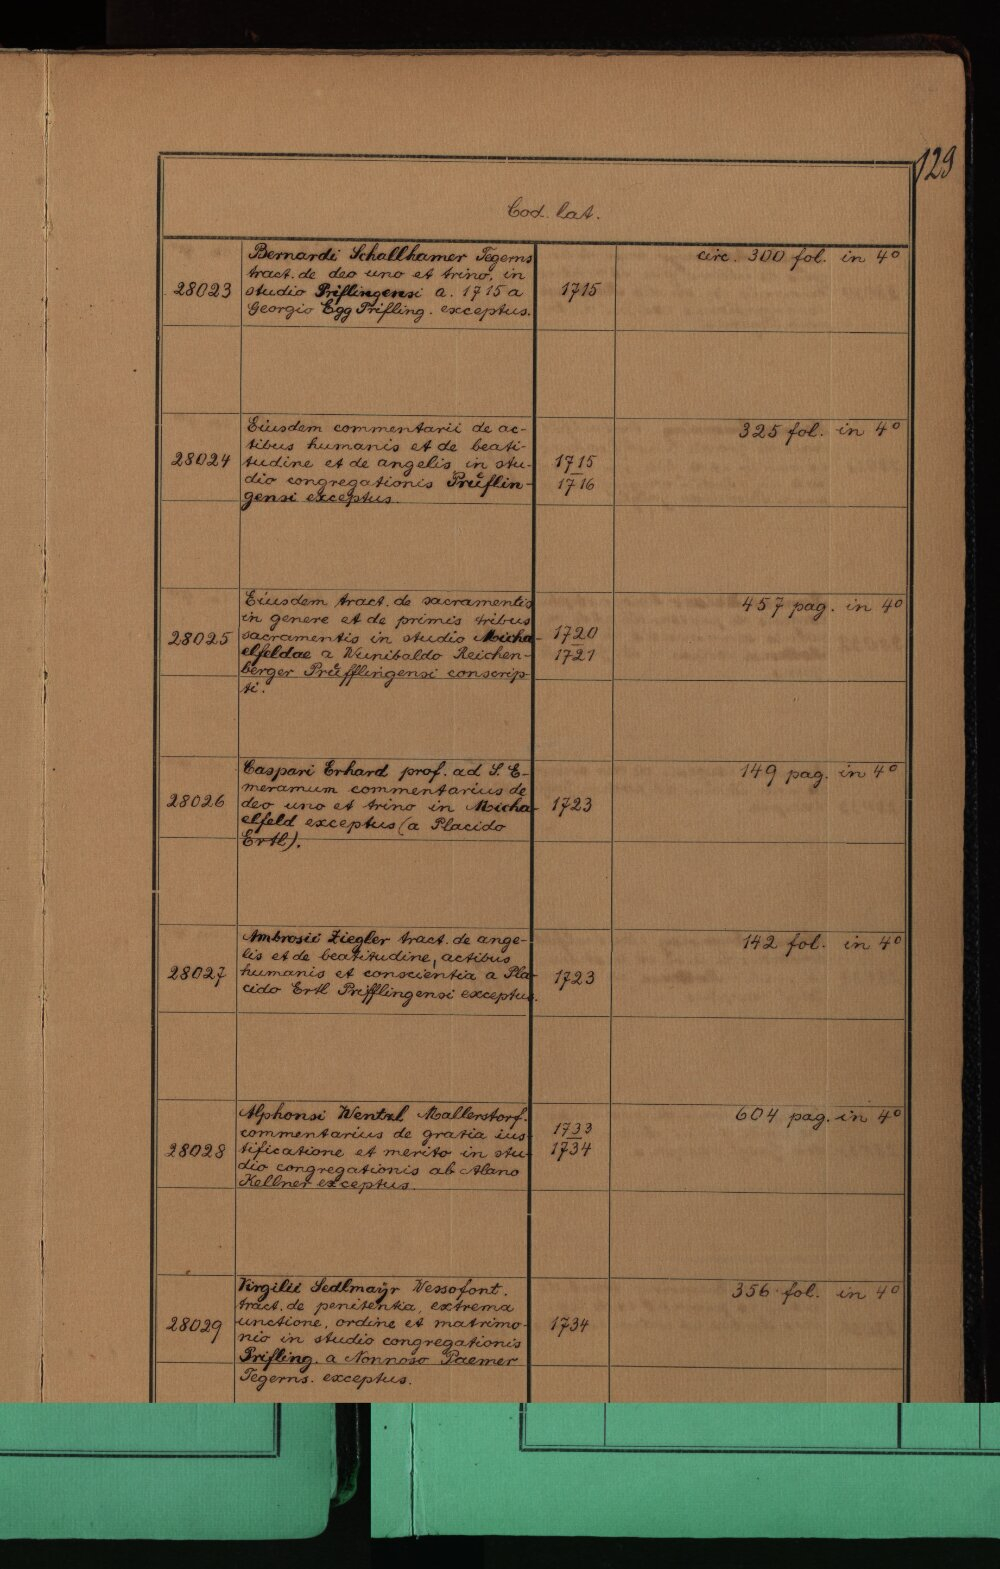 129
Cod. lat.
Bernardi Schallhamer Tegerns
tract. de deo uno et trino, in
28023 studio Priflingensi a. 1715 a 1715
Georgio Egg Prifling. exceptus.
circ. 300 fol. in 4º
Eiusdem commentarii de ac-
tibus humanis et de beati-
28024 tudine et de angelis in stu- 1715
dio congregationis Prüflin- 1716
gensi exceptus.
325 fol. in 4º
Eiusdem tract. de sacramentis
in genere et de primis tribus
28025 sacramentis in studio Micha- 1720
elfeldae a Wunibaldo Reichen- 1721
berger Prüfflingensi conscrip-
ti.
457 pag. in 4º
Caspari Erhard prof. ad S. E-
meramum commentarius de
28026 deo uno et trino in Micha- 1723
elfeld exceptus (a Placido
Ertl).
149 pag. in 4º
Ambrosii Ziegler tract. de ange-
lis et de beatitudine, actibus
28027 humanis et conscientia a Pla- 1723
cido Ertl Prifflingensi exceptus.
142 fol. in 4º
Alphonsi Wentzl Mallerstorf.
commentarius de gratia ius- 1733
28028 tificatione et merito in stu- 1734
dio congregationis ab Alano
Kellner exceptus.
604 pag. in 4º
Virgilii Sedlmaÿr Wessofont.
tract. de penitentia, extrema
28029 unctione, ordine et matrimo- 1734
nio in studio congregationis
Prifling. a Nonnoso Paemer
Tegerns. exceptus.
356 fol. in 4º